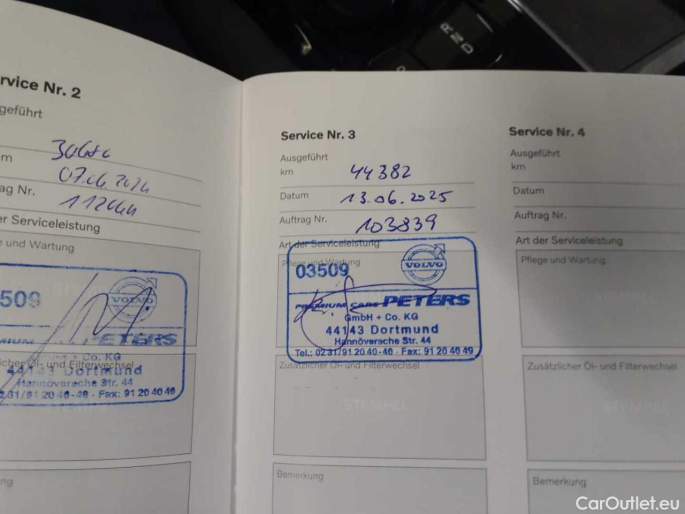 rvice Nr. 2
geführt
m
07.06.2024
ag Nr.
der Serviceleistung
e und Wartung
509
VOLVO
PETERS
+ Co. KG
44143 Dortmund
Hannöversche Str. 44
231/91 20 40-49 - Fax: 91 20 40 49
licher Öl- und Filterwechsel
ng
Service Nr. 3
Ausgeführt
km 44382
Datum 13.06.2025
Auftrag Nr. 103839
Art der Serviceleistung
Pflege und Wartung
03509
VOLVO
PREMIUM CARS PETERS
GmbH + Co. KG
44143 Dortmund
Hannöversche Str. 44
Tel.: 0231/91 20 40-49 - Fax: 91 20 40 49
Zusätzlicher Öl- und Filterwechsel
STEMPEL
Bemerkung
Service Nr. 4
Ausgeführt
km
Datum
Auftrag Nr.
Art der Serviceleistung
Pflege und Wartung
Zusätzlicher Öl- und Filterwechsel
STEMPEL
Bemerkung
R
N
D
CarOutlet.eu